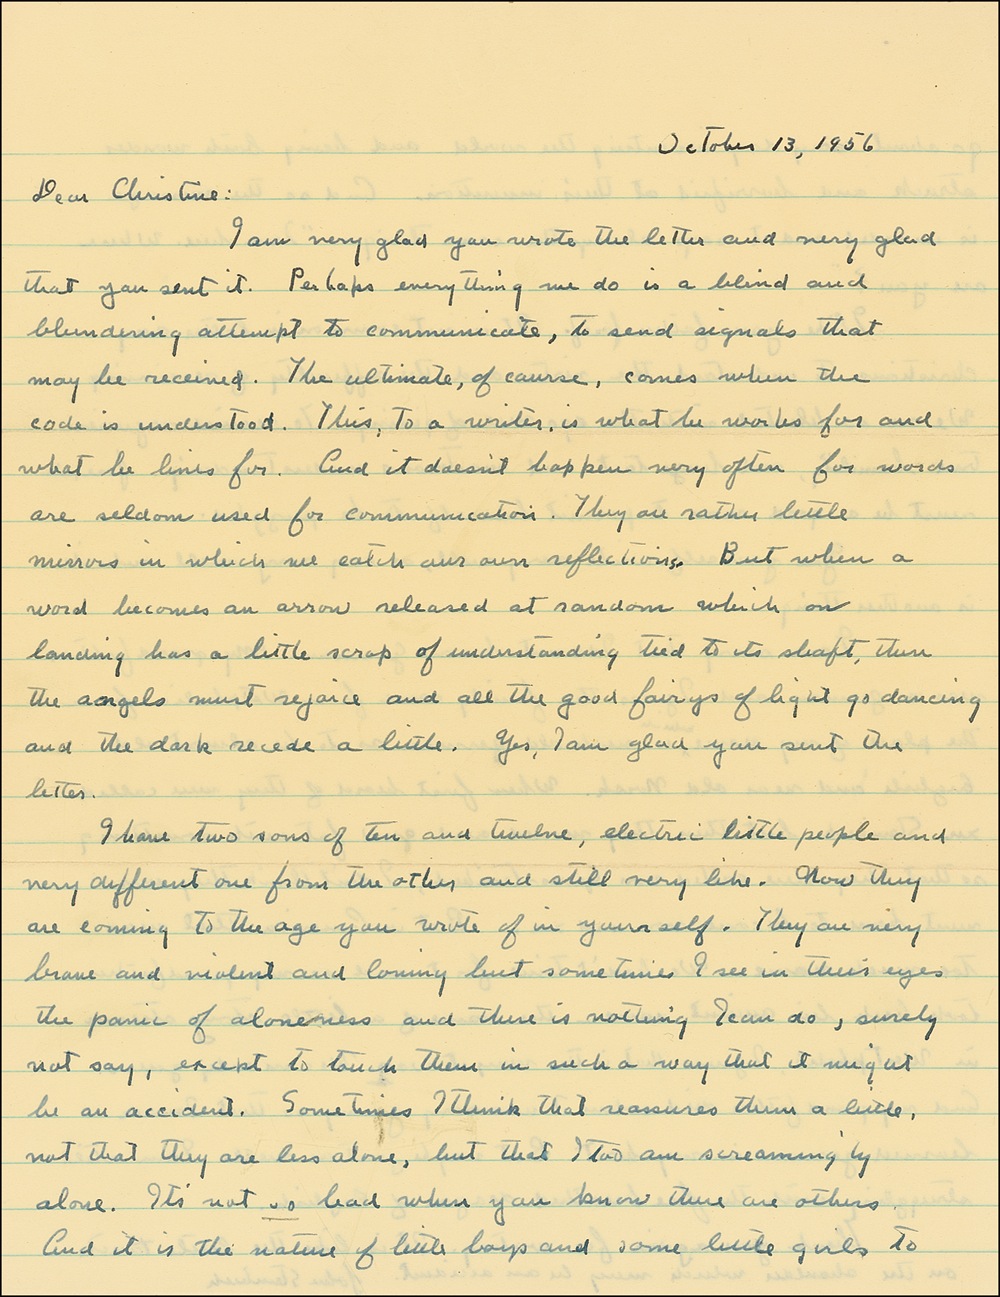 October 13, 1956
Dear Christine:
I am very glad you wrote the letter and very glad
that you sent it. Perhaps everything we do is a blind and
blundering attempt to communicate, to send signals that
may be received. The ultimate, of course, comes when the
code is understood. This, to a writer, is what he works for and
what he lives for. And it doesn't happen very often for words
are seldom used for communication. They are rather little
mirrors in which we catch our own reflections. But when a
word becomes an arrow released at random which on
landing has a little scrap of understanding tied to its shaft, then
the angels must rejoice and all the good fairys of light go dancing
and the dark recede a little. Yes, I am glad you sent the
letter.
I have two sons of ten and twelve, electric little people and
very different one from the other and still very like. Now they
are coming to the age you wrote of in yourself. They are very
brave and violent and loving but sometimes I see in their eyes
the panic of aloneness and there is nothing I can do, surely
not say, except to touch them in such a way that it might
be an accident. Sometimes I think that reassures them a little,
not that they are less alone, but that I too am screamingly
alone. It's not so bad when you know there are others.
And it is the nature of little boys and some little girls to